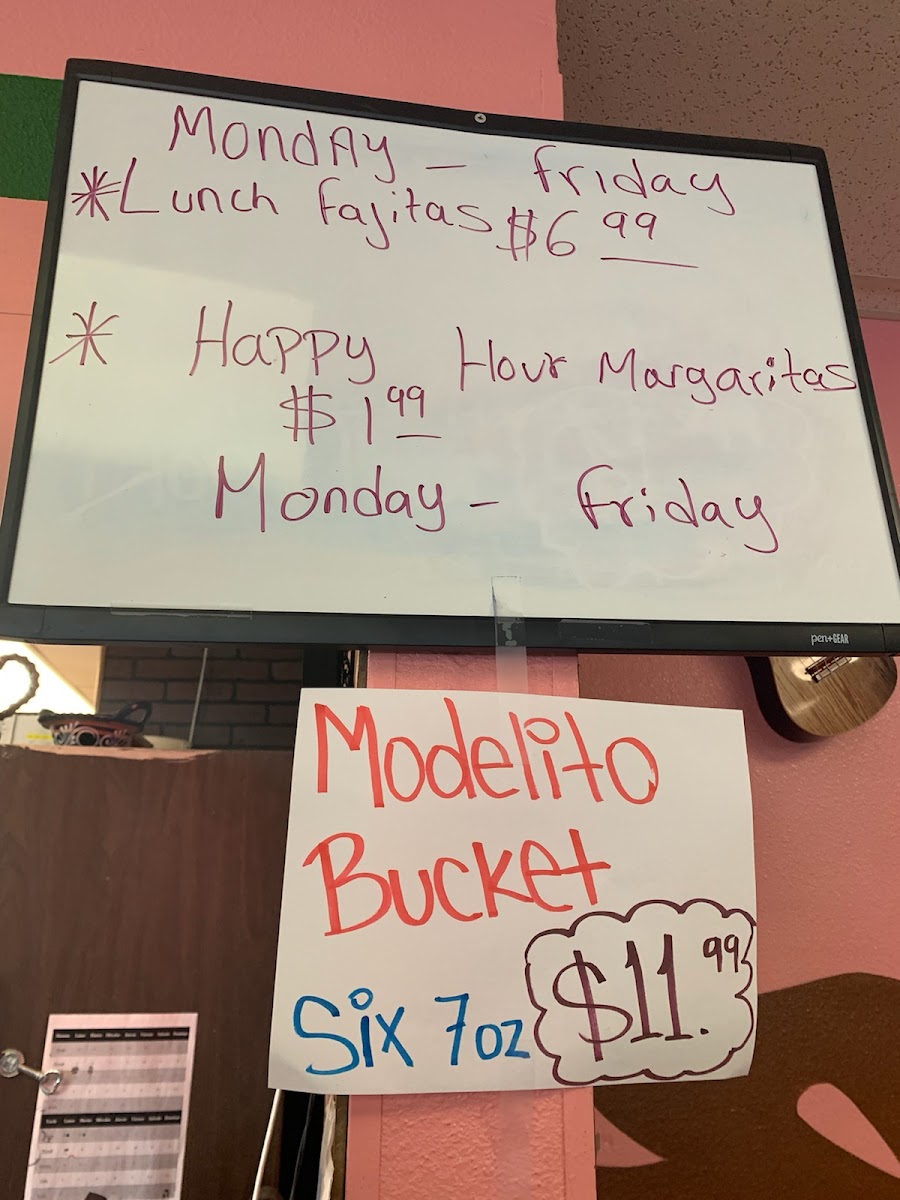 MondAy - friday
*Lunch fajitas $6 99
* Happy Hour Margaritas
$1 99
Monday - friday
pen+GEAR
Modelito
Bucket
Six 7oz $11.99